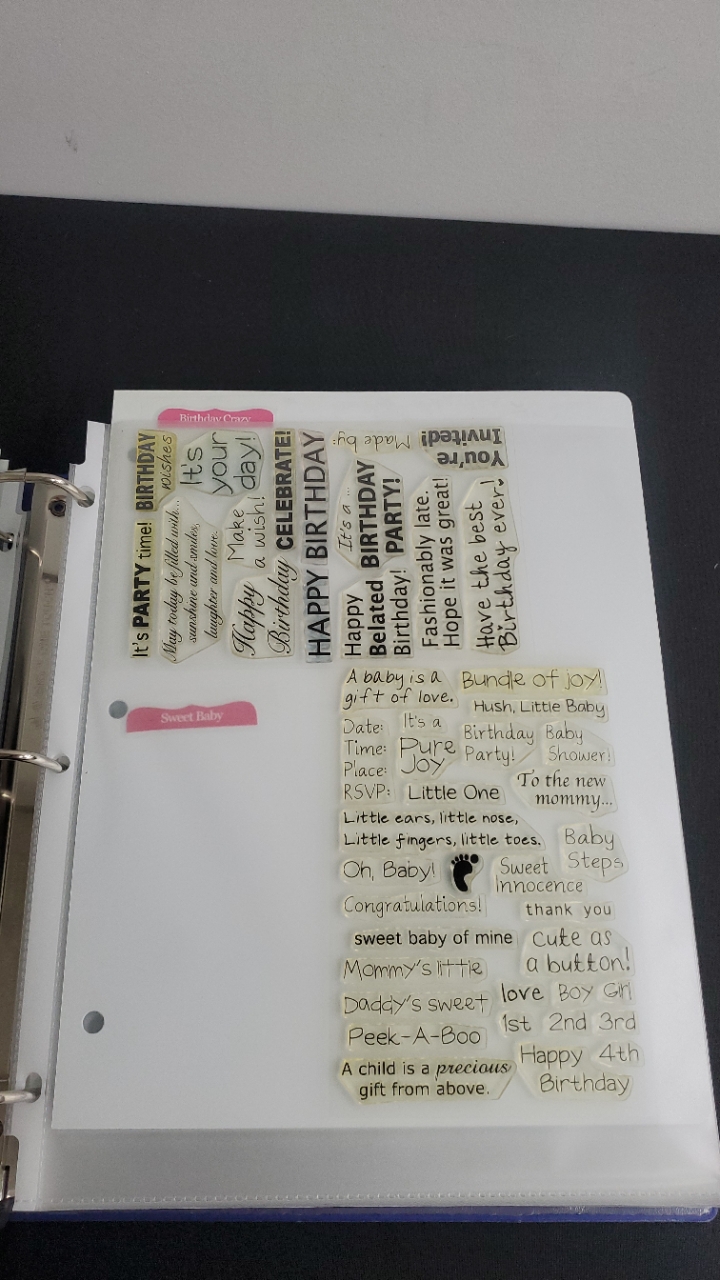 Birthday Crazy
It's PARTY time!
BIRTHDAY
wishes
May today be filled with...
sunshine and smiles,
laughter and love.
It's
your
day!
Make
a wish!
Happy
Birthday
CELEBRATE!
HAPPY BIRTHDAY
Made by:
It's a...
BIRTHDAY
PARTY!
Happy
Belated
Birthday!
You're
Invited!
Fashionably late.
Hope it was great!
Have the best
Birthday ever!
Sweet Baby
A baby is a
gift of love.
Bundle of joy!
Hush, Little Baby
Date:
Time:
Place:
RSVP:
It's a
Pure
Joy
Birthday
Party!
Baby
Shower!
Little One
To the new
mommy...
Little ears, little nose,
Little fingers, little toes.
Baby
Steps
Oh, Baby!
Sweet
Innocence
Congratulations!
thank you
sweet baby of mine
cute as
a button!
Mommy's little
Daddy's sweet
love Boy Girl
1st 2nd 3rd
Peek-A-Boo
Happy 4th
Birthday
A child is a precious
gift from above.